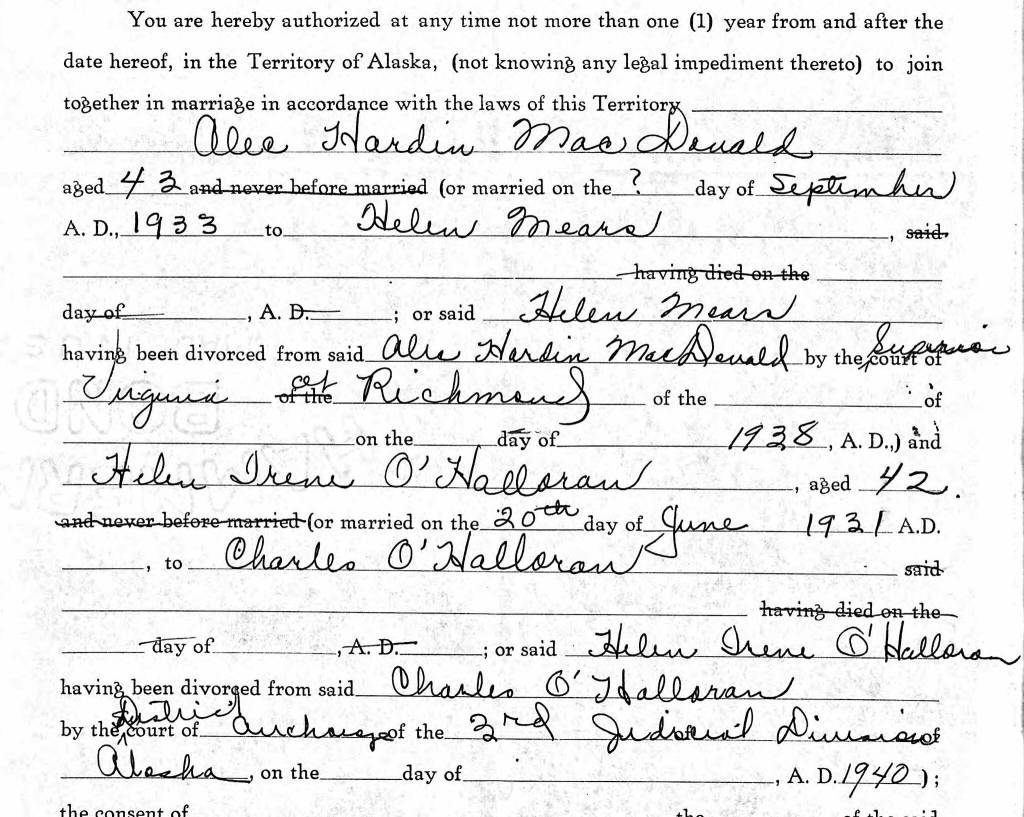 You are hereby authorized at any time not more than one (1) year from and after the
date hereof, in the Territory of Alaska, (not knowing any legal impediment thereto) to join
together in marriage in accordance with the laws of this Territory
Alec Hardin MacDonald
aged 43 and never before married (or married on the ? day of September
A. D., 1933 to Helen Mears, said
having died on the
day of , A. D. ; or said Helen Mears
having been divorced from said Alec Hardin MacDonald by the Superior court of
Virginia of the at Richmond of the of
on the day of 1938, A. D.,) and
Helen Irene O'Halloran, aged 42.
and never before married (or married on the 20th day of June 1931 A.D.
, to Charles O'Halloran said
having died on the
day of , A. D. ; or said Helen Irene O'Halloran
having been divorged from said Charles O'Halloran
by the District court of Anchorage of the 3rd Judicial Division of
Alaska, on the day of , A. D. 1940);
the consent of the of the said